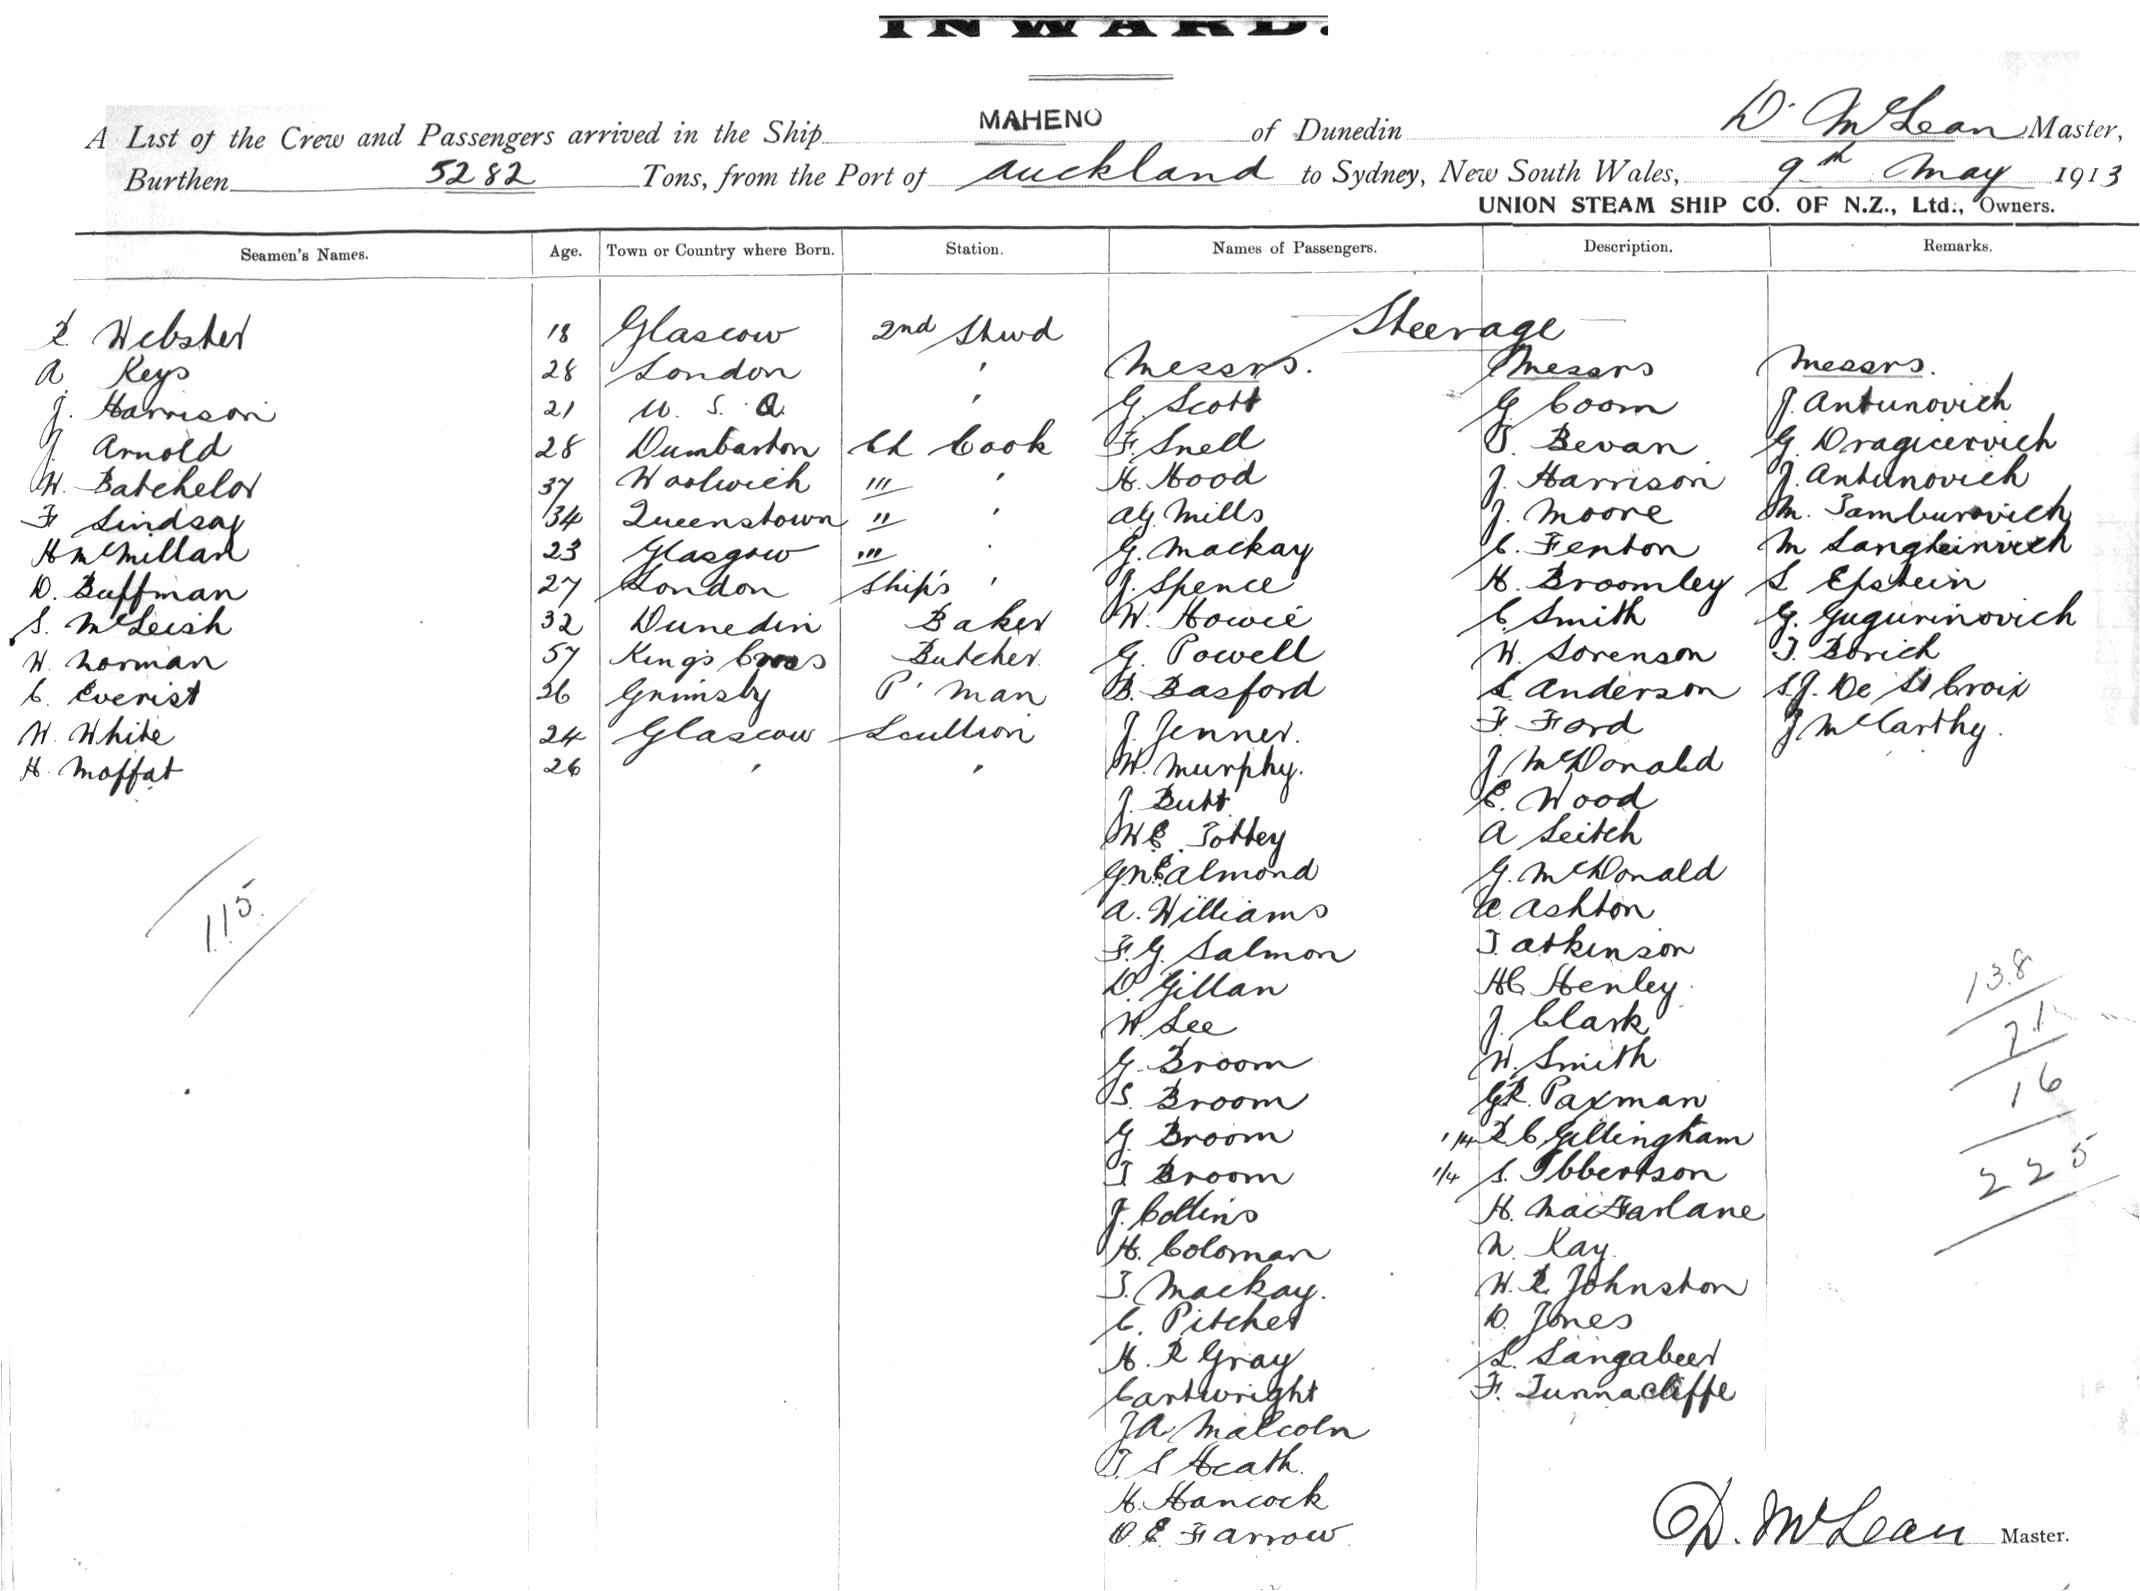 INWARD.
A List of the Crew and Passengers arrived in the Ship MAHENO of Dunedin D. McLean Master,
Burthen 5282 Tons, from the Port of Auckland to Sydney, New South Wales, 9th May 1913
UNION STEAM SHIP CO. OF N.Z., Ltd., Owners.
Seamen's Names. Age. Town or Country where Born. Station. Names of Passengers. Description. Remarks.
Steerage
R Webster 18 Glascow 2nd Stwd
Messrs. Messrs Messrs.
A Keys 28 London '
J. Harrison 21 U. S. A ' G. Scott G Coom J. Antunovich
J. Arnold 28 Dumbarton Ch Cook F. Snell T. Bevan G. Dragicevich
W. Batchelor 37 Woolwich ''' ' H. Hood J. Harrison J. Antunovich
F Lindsay 34 Queenstown '' ' AG Mills J. Moore M. Tamburovich
H McMillan 23 Glasgow ''' ' G. Mackay C. Fenton M
D. Buffman 27 London Ship's ' J. Spence H. Broomley S Epstein
S. McLeish 32 Dunedin Baker W. Howie C Smith G. Gugurinovich
W. Norman 57 King's Cross Butcher G. Powell W. Sorenson T. Borich
C. Everist 26 Grimsby P' man B. Basford S. Anderson S.J. De St Croix
W. White 24 Glascow Scullion J. Jenner. F. Ford J McCarthy.
H. Moffat 26 ' ' W. Murphy. J. McDonald
J. Butt E. Wood
W E. Tottey A Leitch
G.N.E. Almond G. McDonald
A. Williams A. Ashton
F. G. Salmon T. Atkinson
D. Gillan HC Henley.
W. Lee J. Clark
G. Broom W. Smith
S. Broom GR. Paxman
G. Broom 1/4 R C Gillingham
T Broom 1/4 S. Ibbertson
J. Collins H. MacFarlane
H. Coloman N. Kay.
T. Mackay. W. R. Johnston
C. Pitcher D. Jones
H. R Gray L. Langabeer
Cartwright F. Tunnacliffe
JA Malcoln
T. S Heath.
H. Hancock
D. E Farrow
115.
138
71
16
225
D. McLean Master.